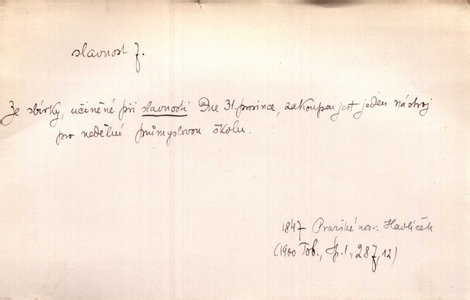 slavnost f.
Ze sbírky, učiněné při slavnosti dne 31. prosince, zakoupen jest jeden nástroj
pro nedělné průmyslovou školu.
1847 Pražské nov.: Havlíček
(1900 Tob., Sp. 1, 287, 12)